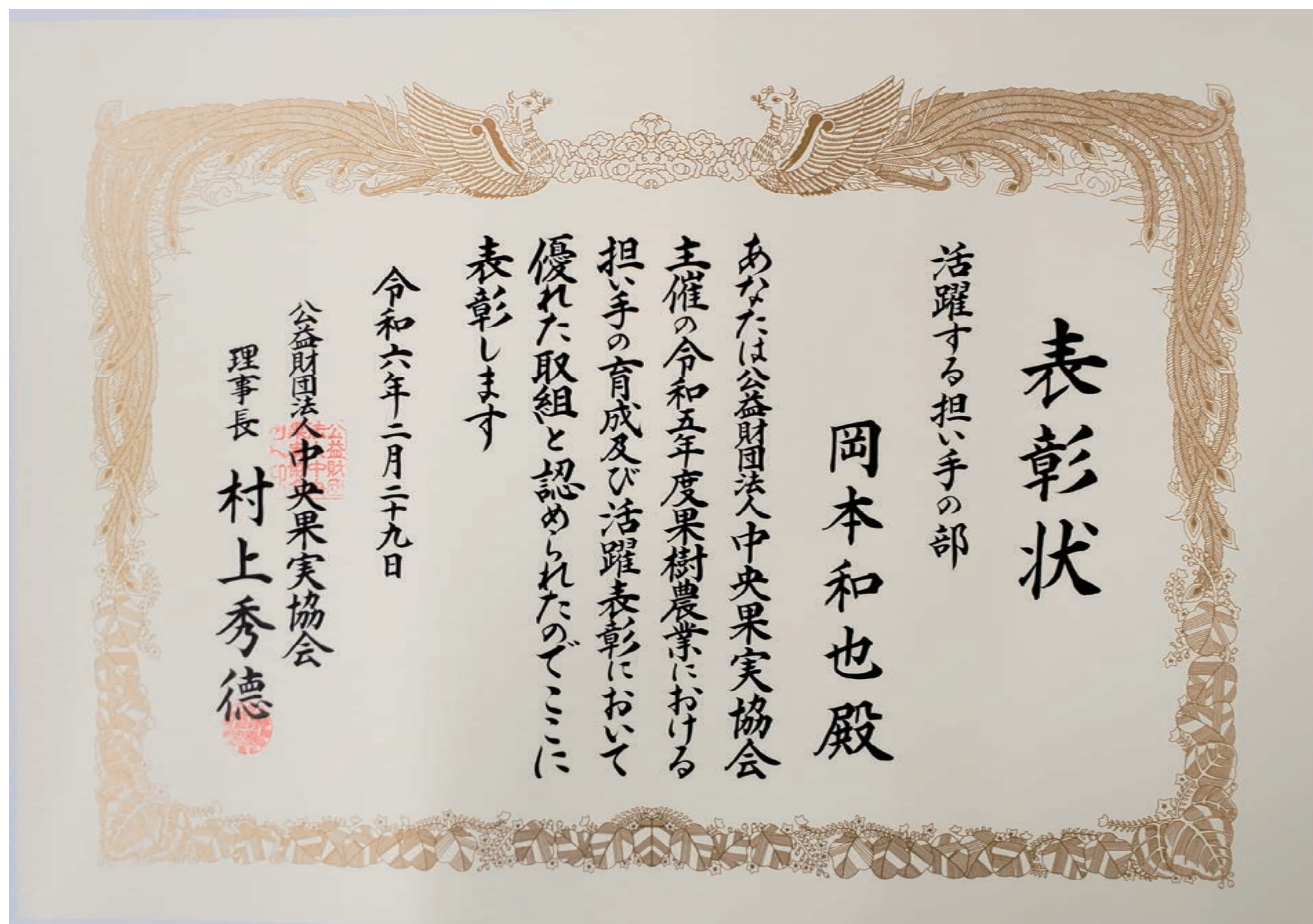 表彰状
活躍する担い手の部
岡本和也殿
あなたは公益財団法人中央果実協会
主催の令和五年度果樹農業における
担い手の育成及び活躍表彰において
優れた取組と認められたのでここに
表彰します
令和六年二月二十九日
公益財団法人中央果実協会
理事長 村上秀德